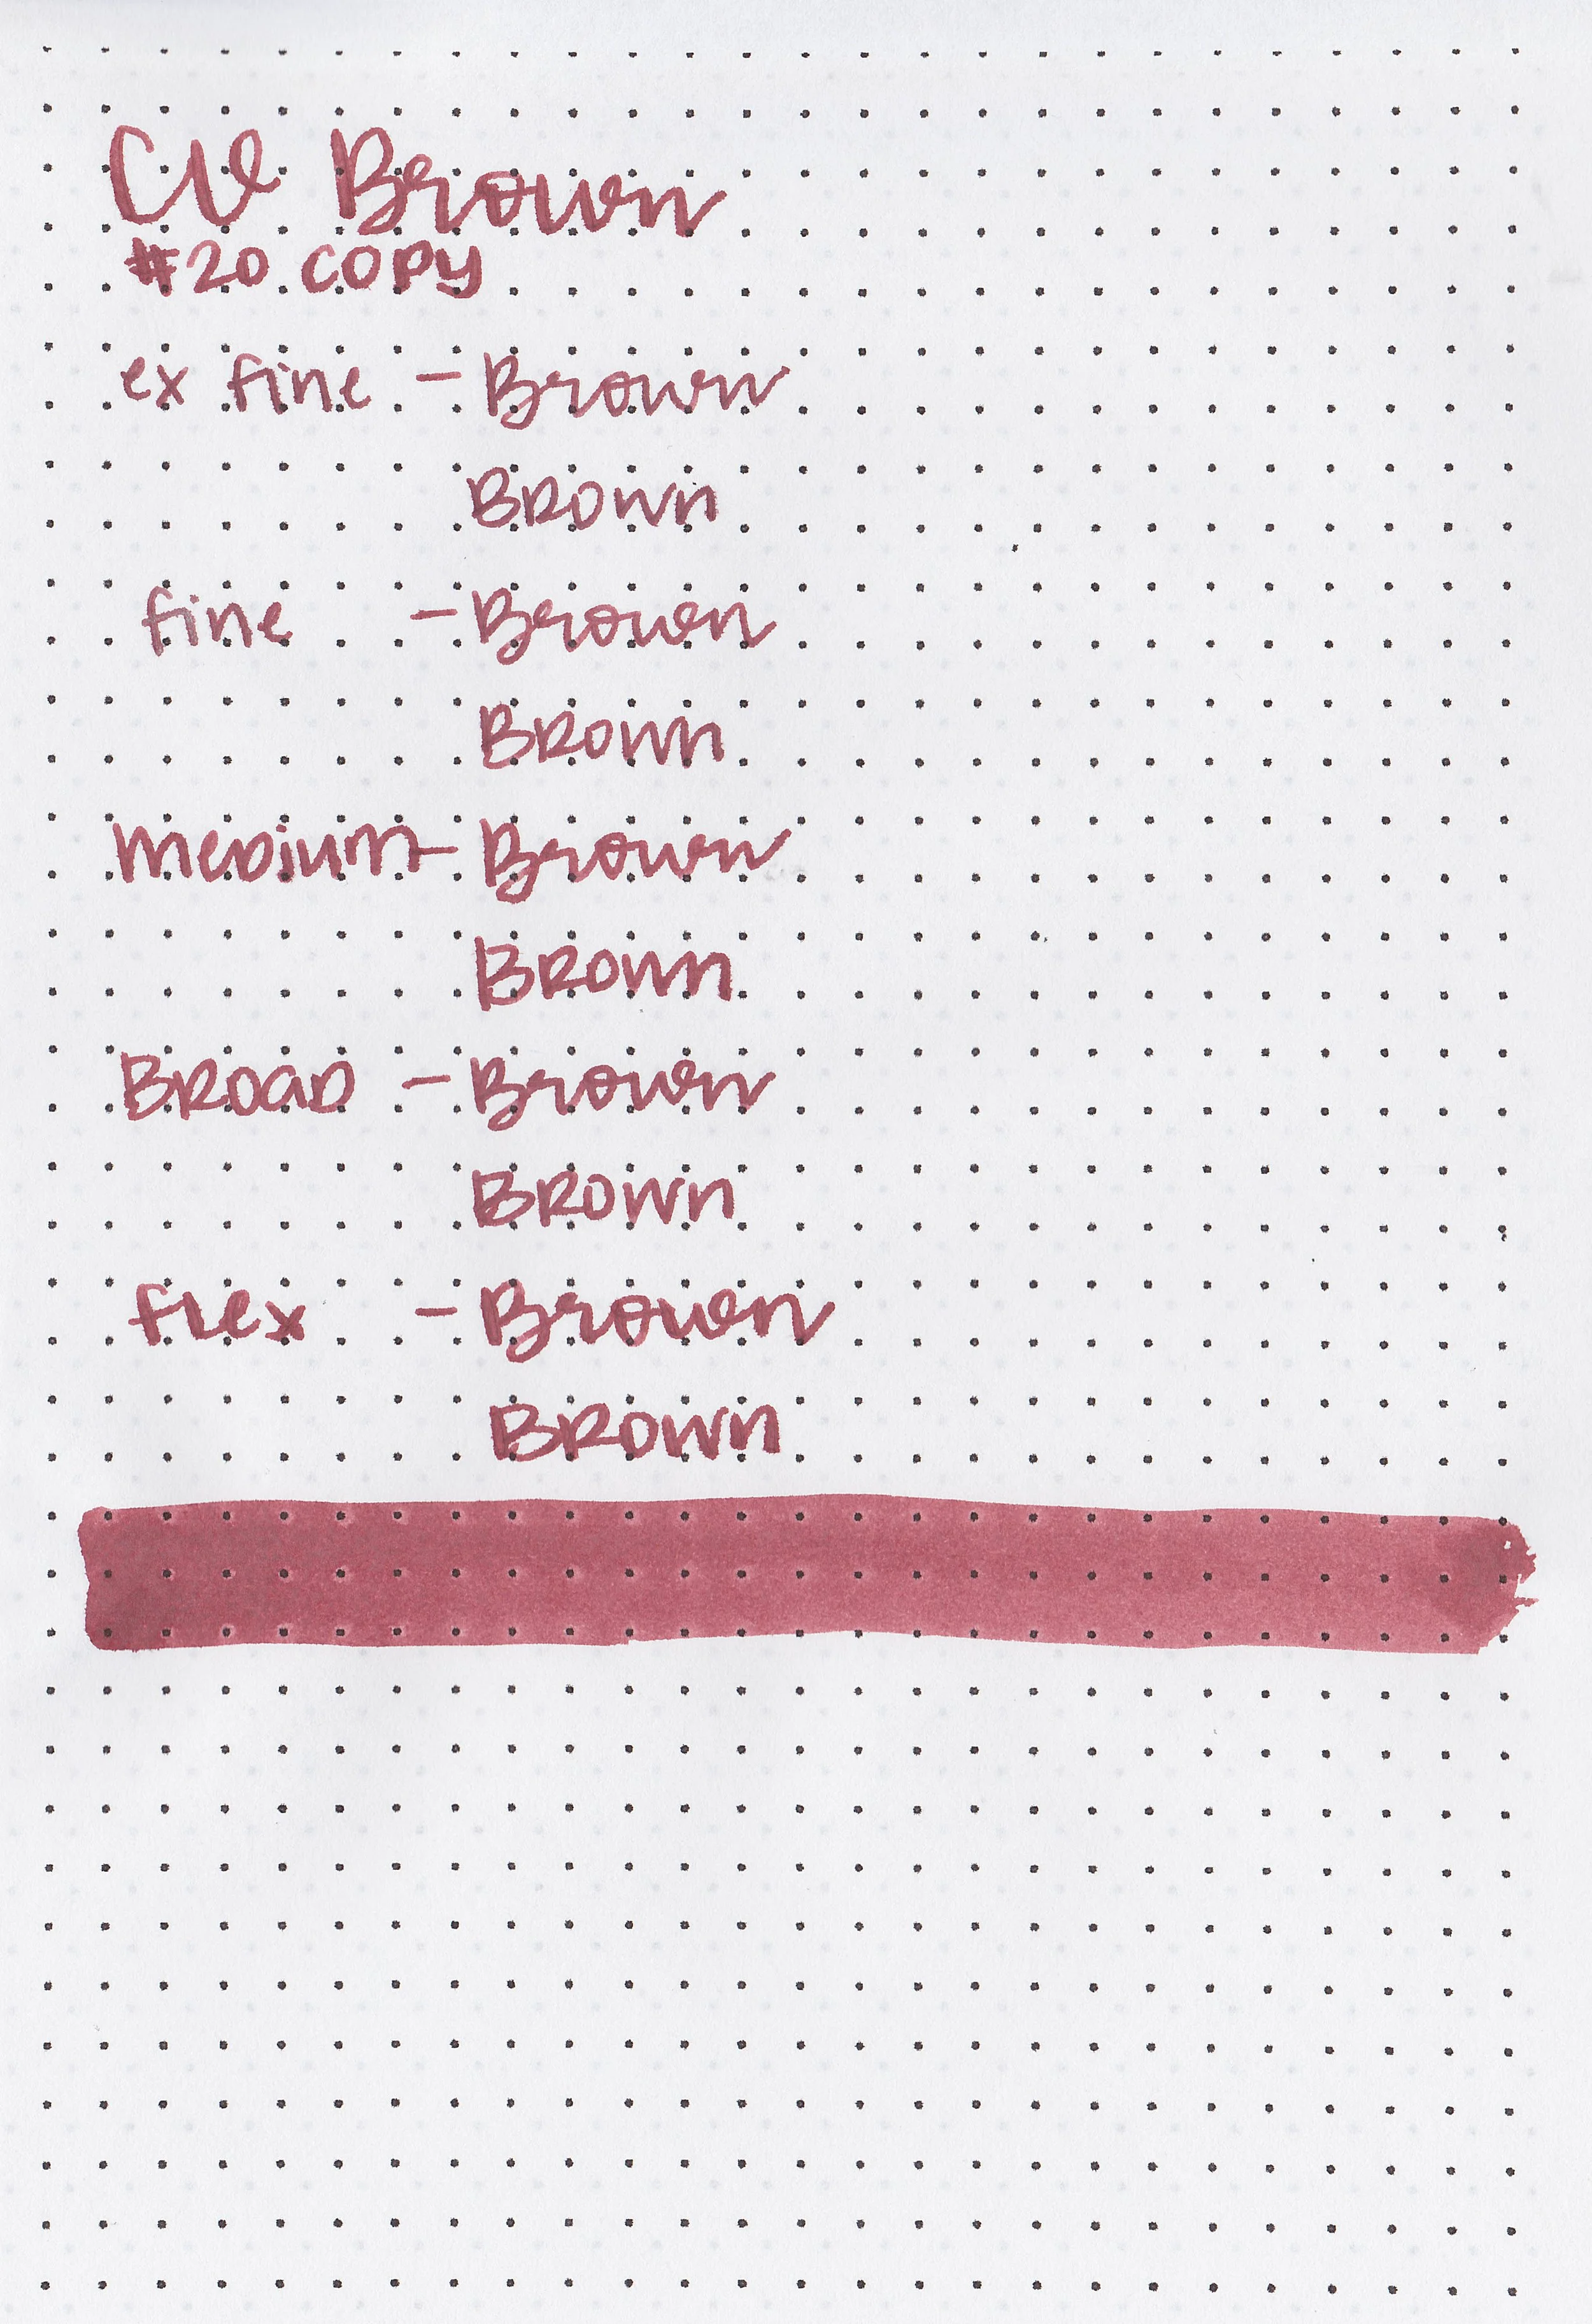 CV Brown
#20 COPY
ex fine - Brown
BROWN
fine - Brown
BROWN
MEDIUM - Brown
BROWN
BROAD - Brown
BROWN
flex - Brown
BROWN